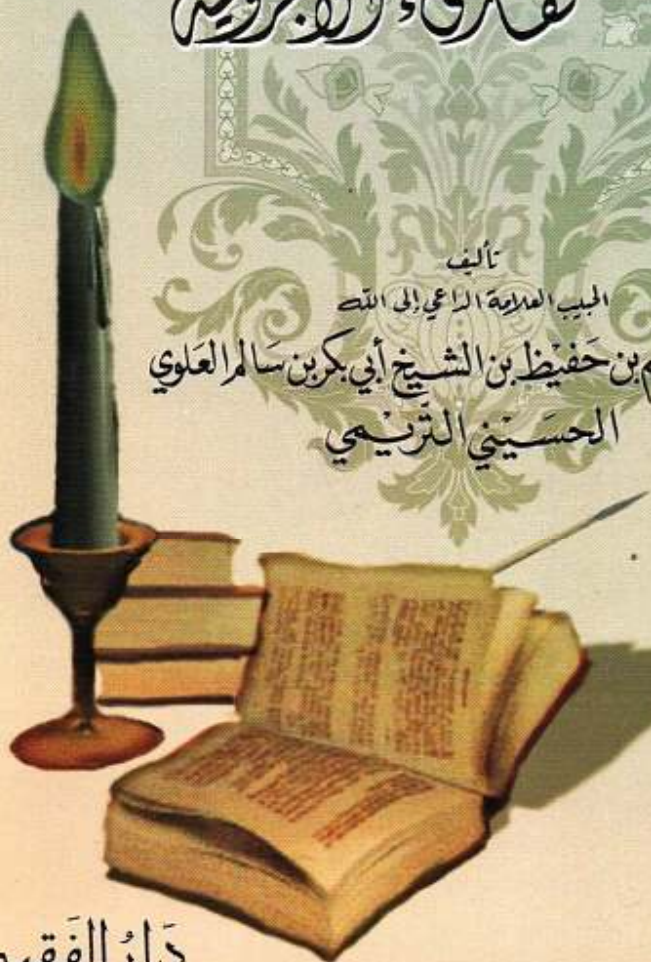 لقارىء الآجرومية
تأليف
الحبيب العلامة الداعي إلى الله
بن حَفيْظ بن الشيخ أبي بكر بن سَالم العَلوي
الحسَيْني التَّرِيْمي
دَارُ الفَقيه